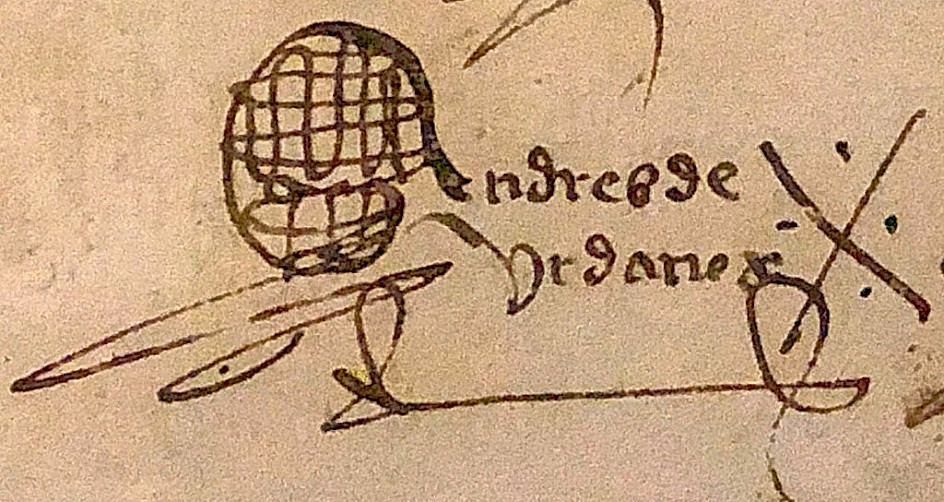 andres de
Vrdanex